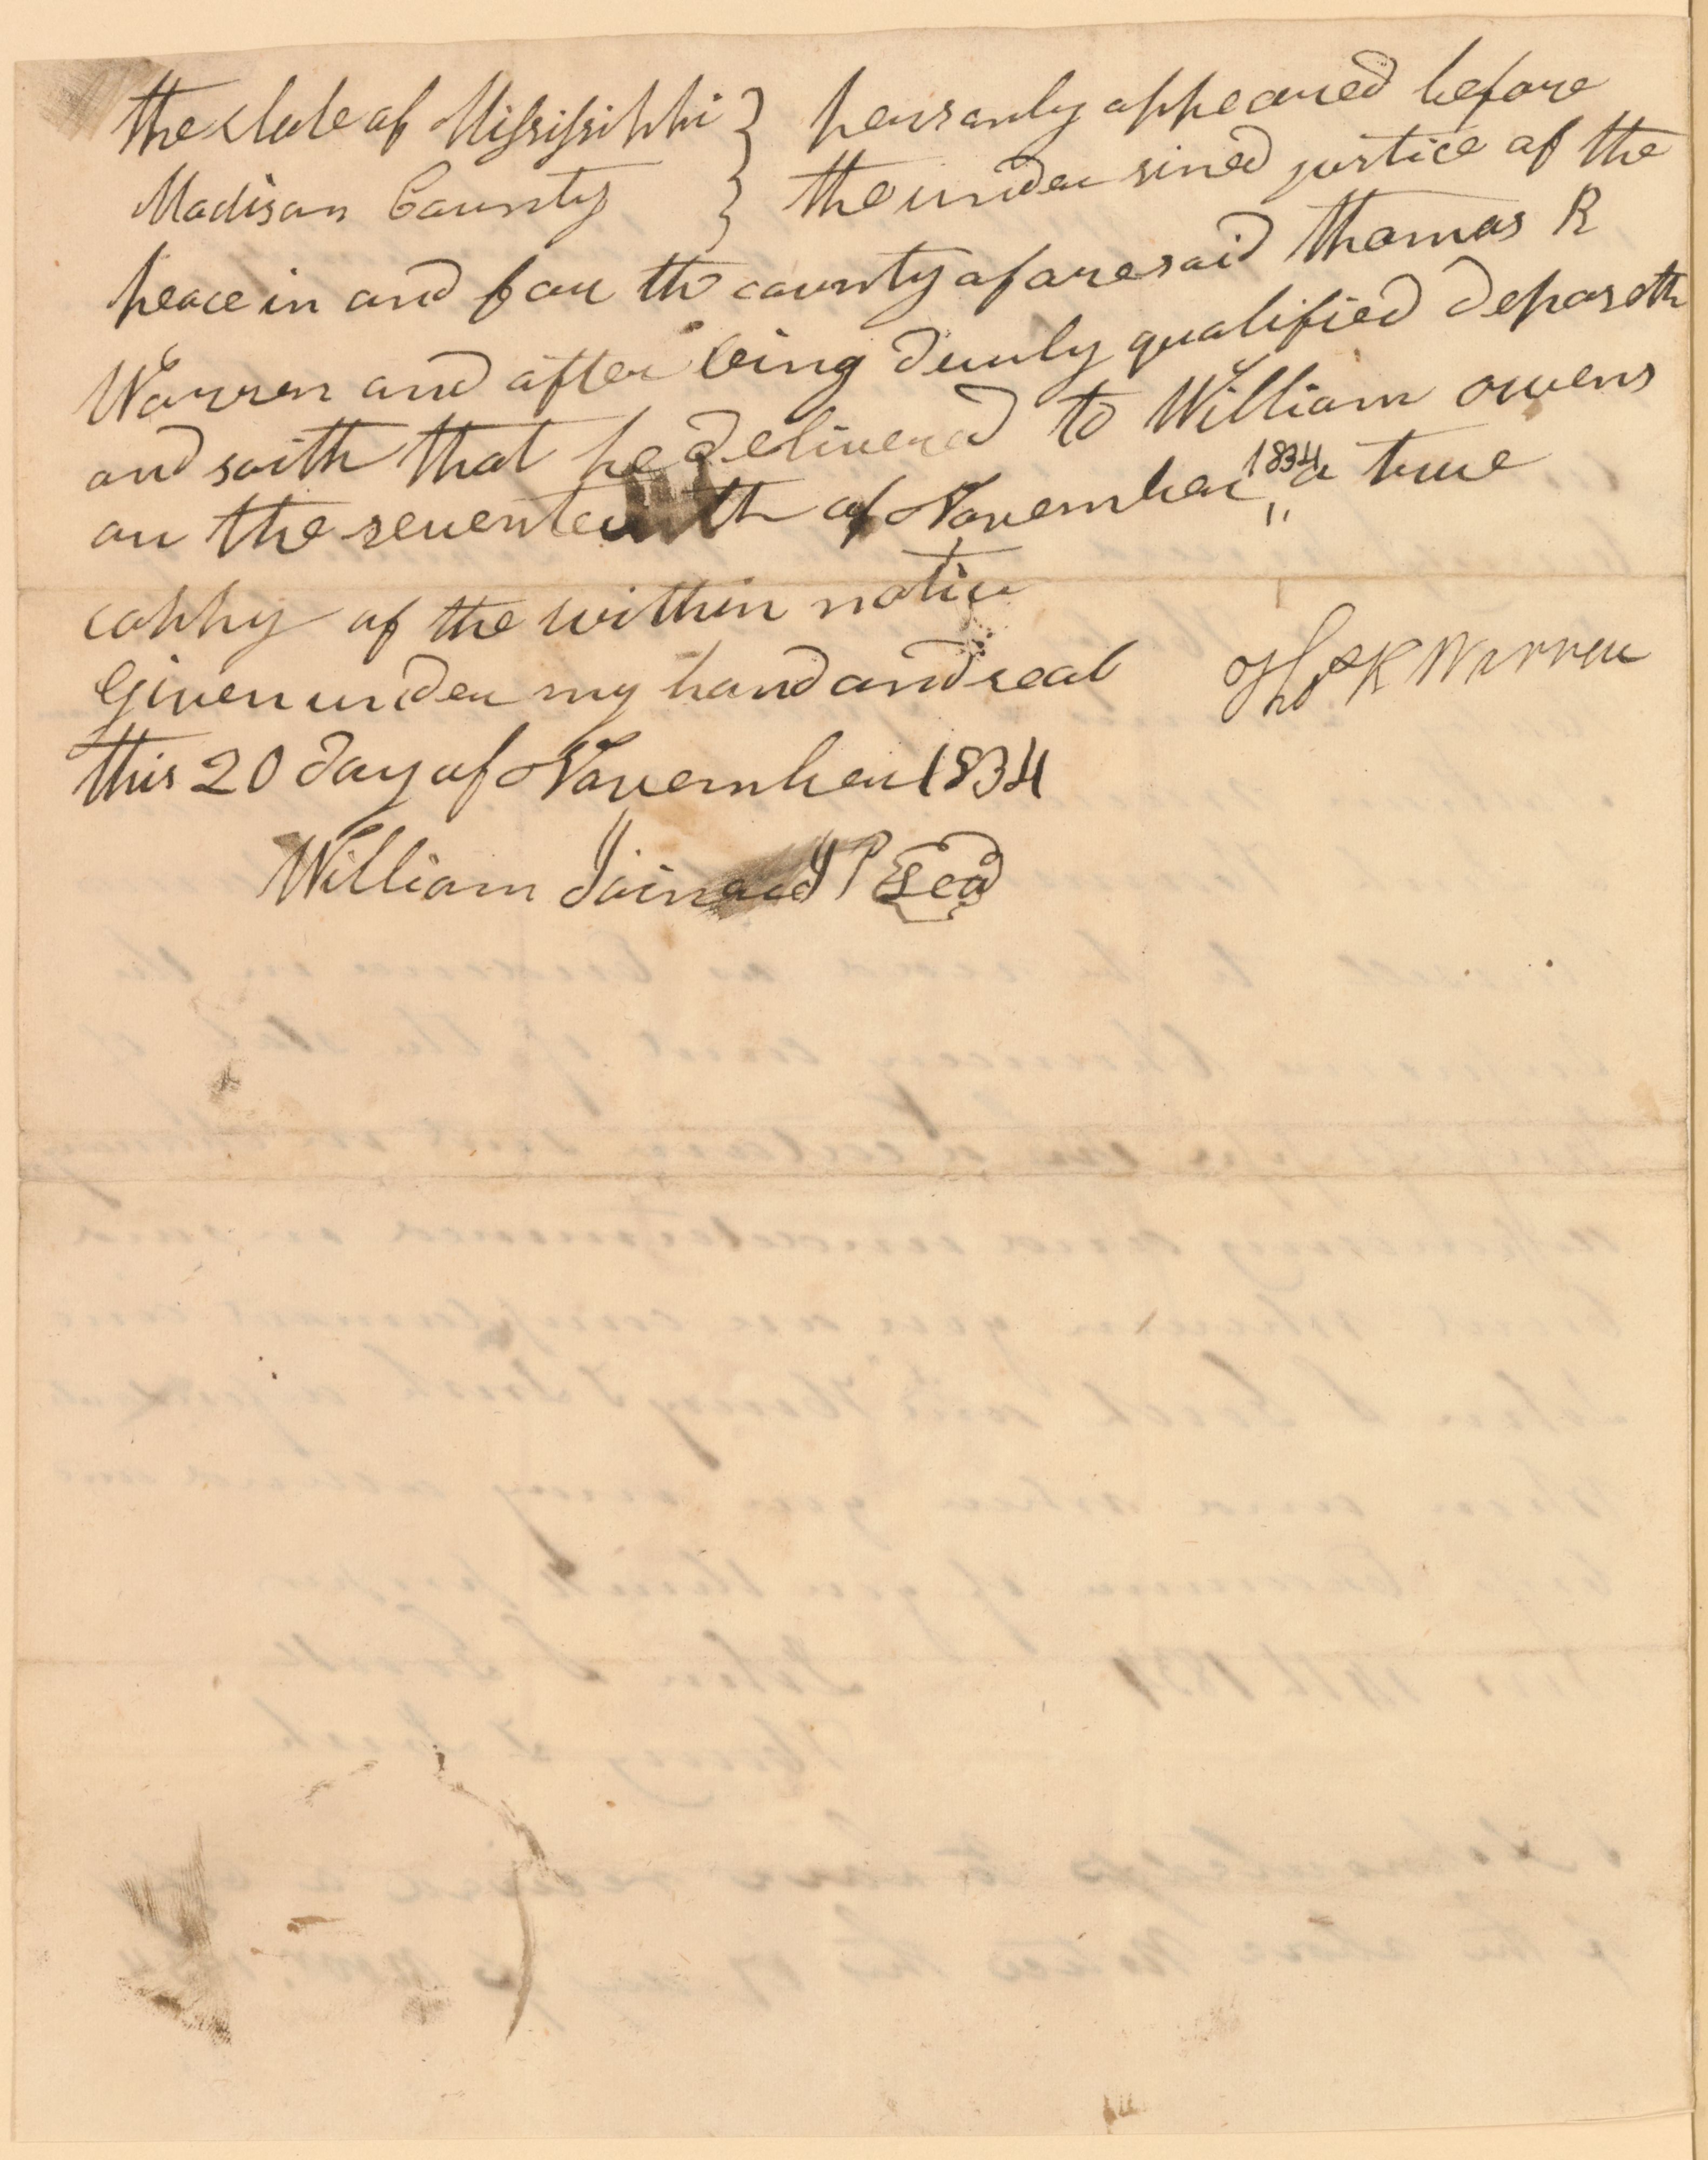 the state of Missisippi } persanly appeared before
Madison County } the under sined justice of the
peace in and for the county aforesaid Thomas R
Warren and after being deuly qualified deposeth
and saith that he delivered to William owens
on the seventeenth of November 1834 a true
coppy of the within notice
Given under my hand and seal Thos R Warren
this 20 day of November 1834
William J P Seal